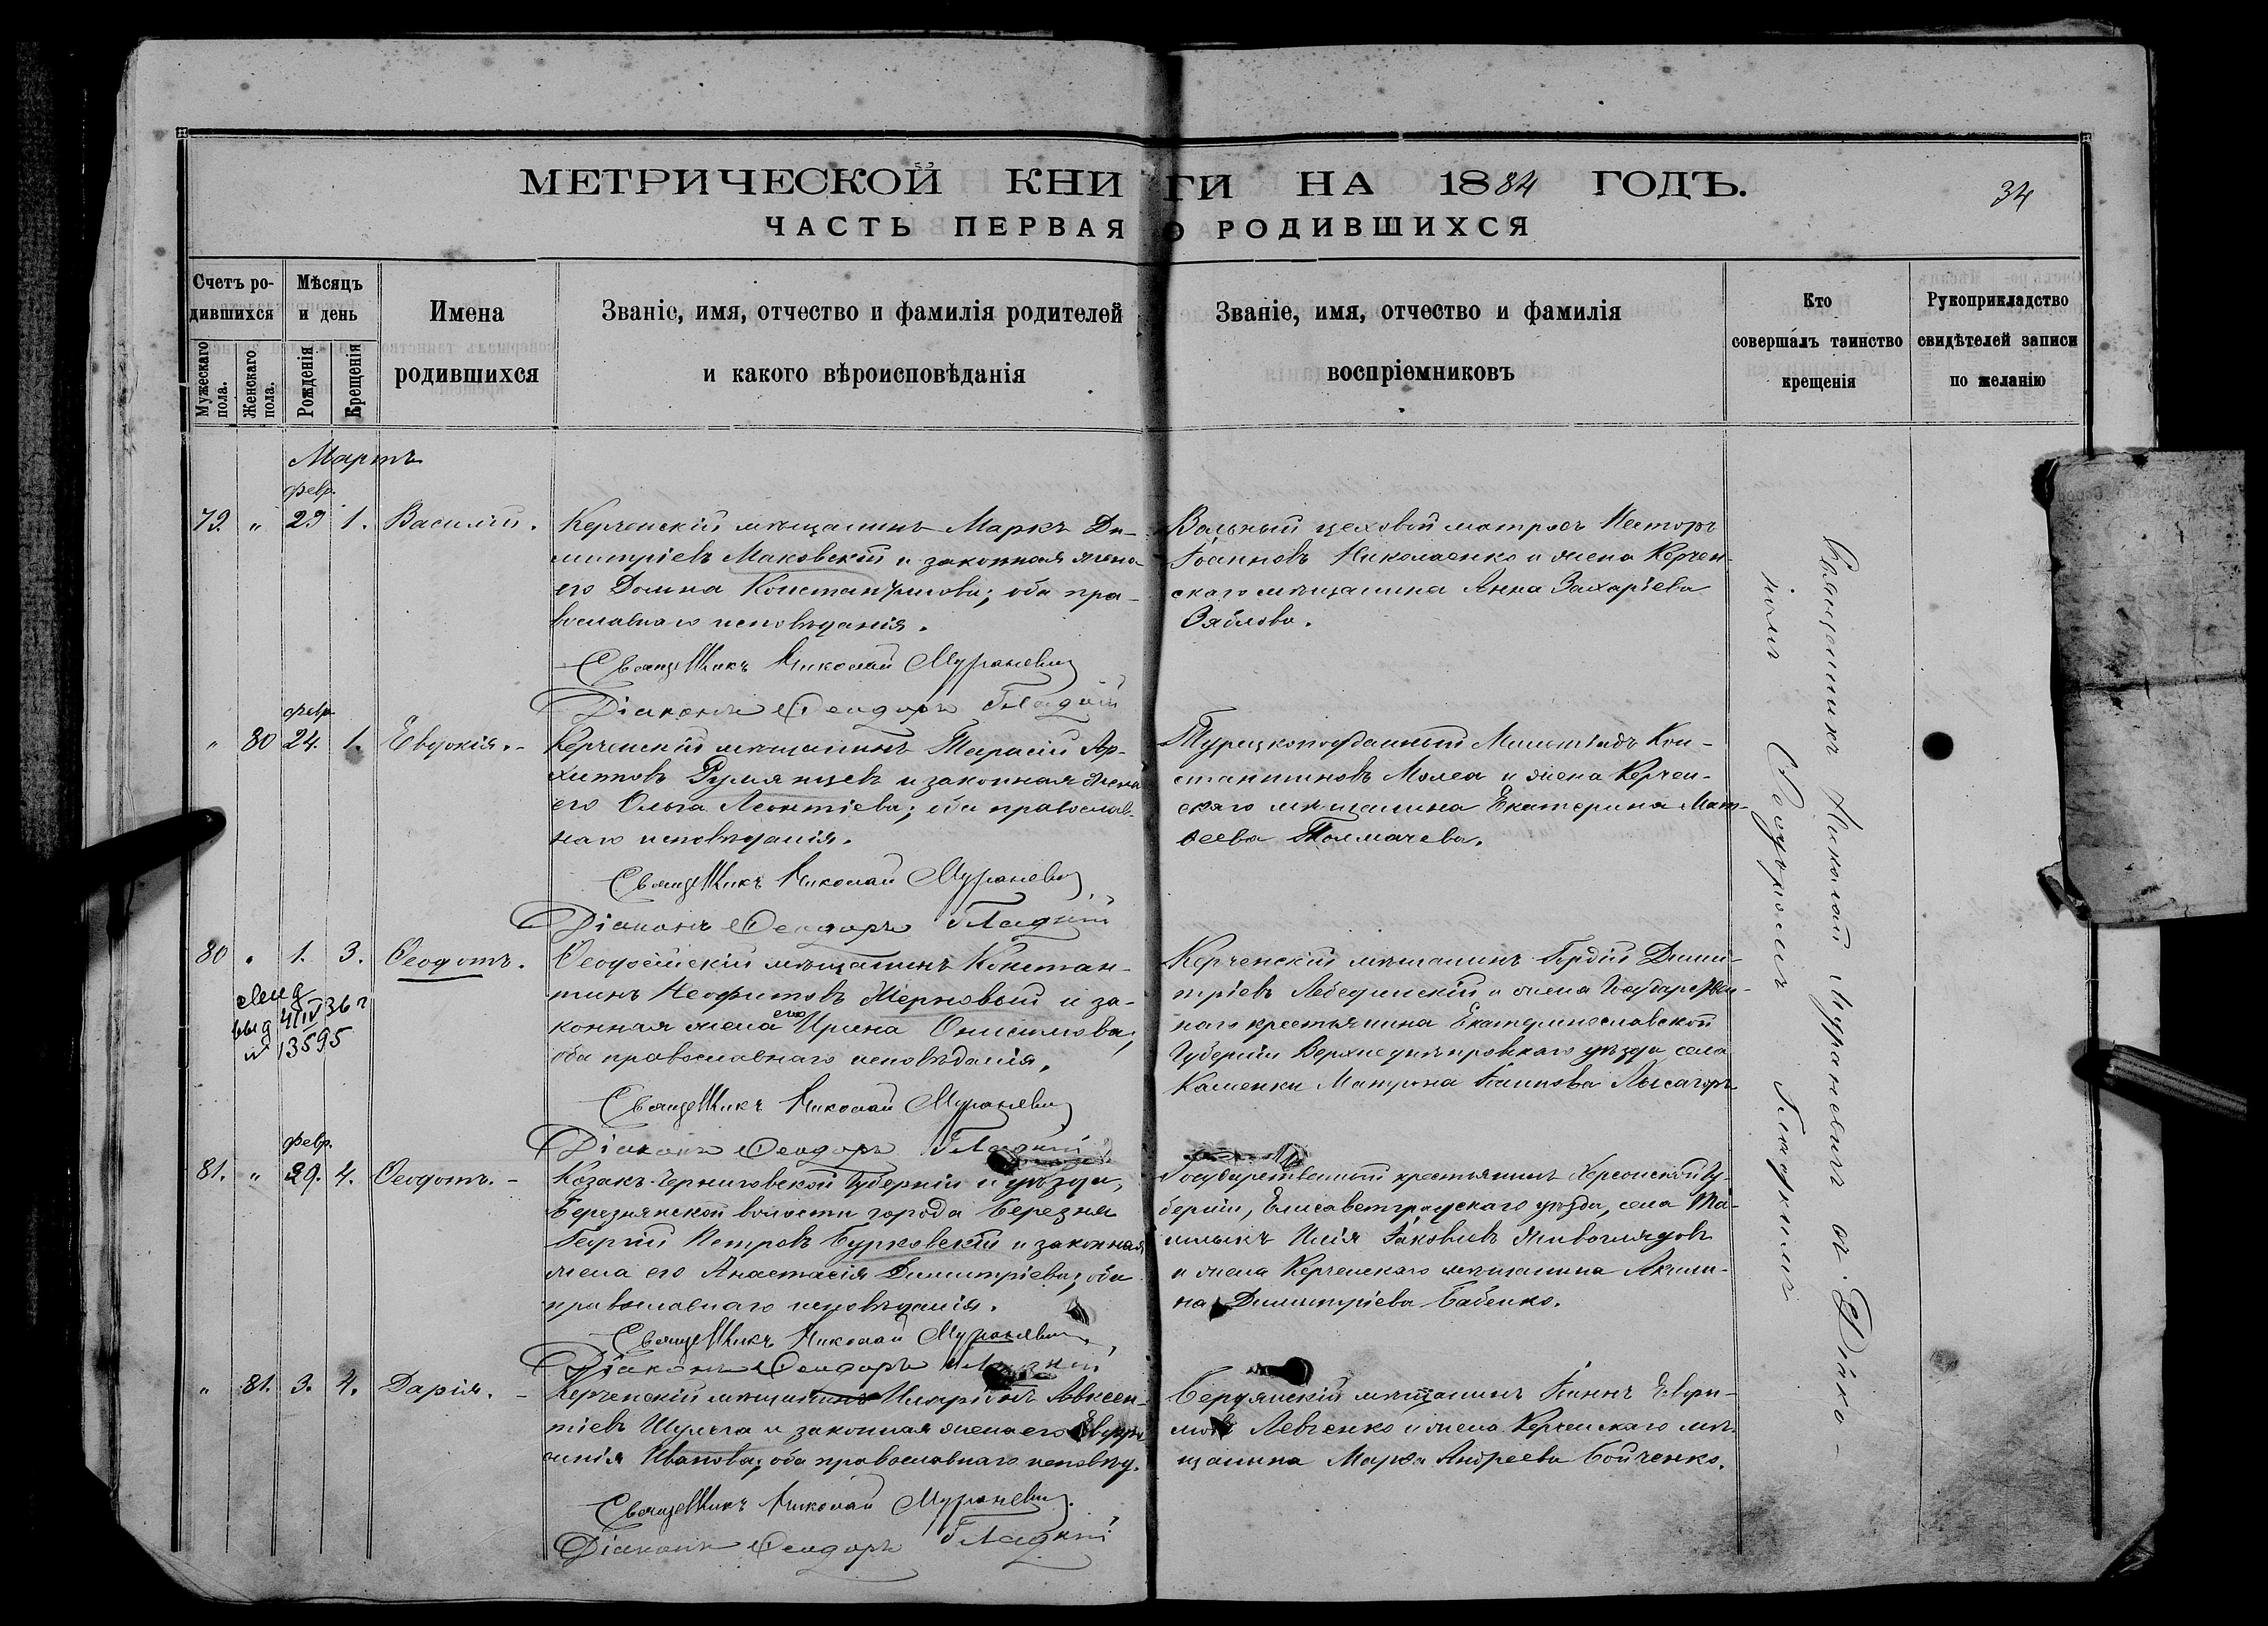 МЕТРИЧЕСКОЙ КНИГИ НА 1884 ГОДЪ.
34
ЧАСТЬ ПЕРВАЯ О РОДИВШИХСЯ
Счетъ ро-
дившихся
Мужескаго пола.
Женскаго пола.
Мѣсяцъ
и день
Рожденія
Крещенія
Имена
родившихся
Званіе, имя, отчество и фамилія родителей
и какого вѣроисповѣданія
Званіе, имя, отчество и фамилія
воспріемниковъ
Кто
совершалъ таинство
крещенія
Рукоприкладство
свидѣтелей записи
по желанію
Мартъ
февр.
79. " 29 1. Василій.
Керченскій мѣщанинъ Маркъ Ди-
митріевъ Маковскій и законная жена
его Домна Константинова; оба пра-
вославнаго исповѣданія.
Священникъ Николай Мураневич
Діаконъ Ѳеодоръ Гладкій
Вольный цеховой матросъ Несторъ
Іоанновъ Николаенко и жена Керчен-
скаго мѣщанина Анна Захаріева
Зяблова.
февр.
" 80 24. 1. Евдокія. -
Керченскій мѣщанинъ Тарасій Ар-
хиповъ Румянцевъ и законная жена
его Ольга Леонтіева; оба православ-
наго исповѣданія.
Священникъ Николай Мураневич
Діаконъ Ѳеодоръ Гладкій
Турецкоподданный Мильтіадъ Кон-
стантиновъ Молеа и жена Керчен-
скаго мѣщанина Екатерина Мат-
ѳеева Толмачева.
80 " 1. 3. Ѳеодотъ.
выд 4/IV 36 г
№ 13595
Ѳеодосійскій мѣщанинъ Констан-
тинъ Неофитовъ Жерновый и за-
конная жена его Ирина Онисимова;
оба православнаго исповѣданія.
Священникъ Николай Мураневич
Діаконъ Ѳеодоръ Гладкій
Керченскій мѣщанинъ Гордій Дими-
тріевъ Лебединскій и жена Государствен-
наго крестьянина Екатеринославской
Губерніи Верхнеднѣпровскаго уѣзда села
Каменки Матрона Іоаннова Лысагоръ
февр.
81. " 29. 4. Ѳеодотъ. -
Козакъ Черниговской Губерніи и уѣзда,
Березнянской волости города Березна
Георгій Петровъ Бурковскій и законная
жена его Анастасія Димитріева; оба
православнаго исповѣданія.
Священникъ Николай Мураневич
Діаконъ Ѳеодоръ Гладкій
Государственный крестьянинъ Херсонской Гу-
берніи, Елисаветградскаго уѣзда, села
Илія Іаковлевъ Живоглядовъ
и жена Керченскаго мѣщанина Акили-
на Димитріева Бабенко.
" 81. 3. 4. Дарія. -
Керченскій мѣщанинъ Иларіонъ Авксен-
тіевъ Шульга и законная жена его Евфро-
синія Иванова; оба православнаго исповѣд.
Священникъ Николай Мураневич
Діаконъ Ѳеодоръ Гладкій
Бердянскій мѣщанинъ Іоаннъ Евфи-
мовъ Левченко и жена Керченскаго мѣ-
щанина Марѳа Андреева Бойченко.
Священникъ Николай Мураневичъ съ Діако-
номъ Ѳеодоромъ Гладкимъ